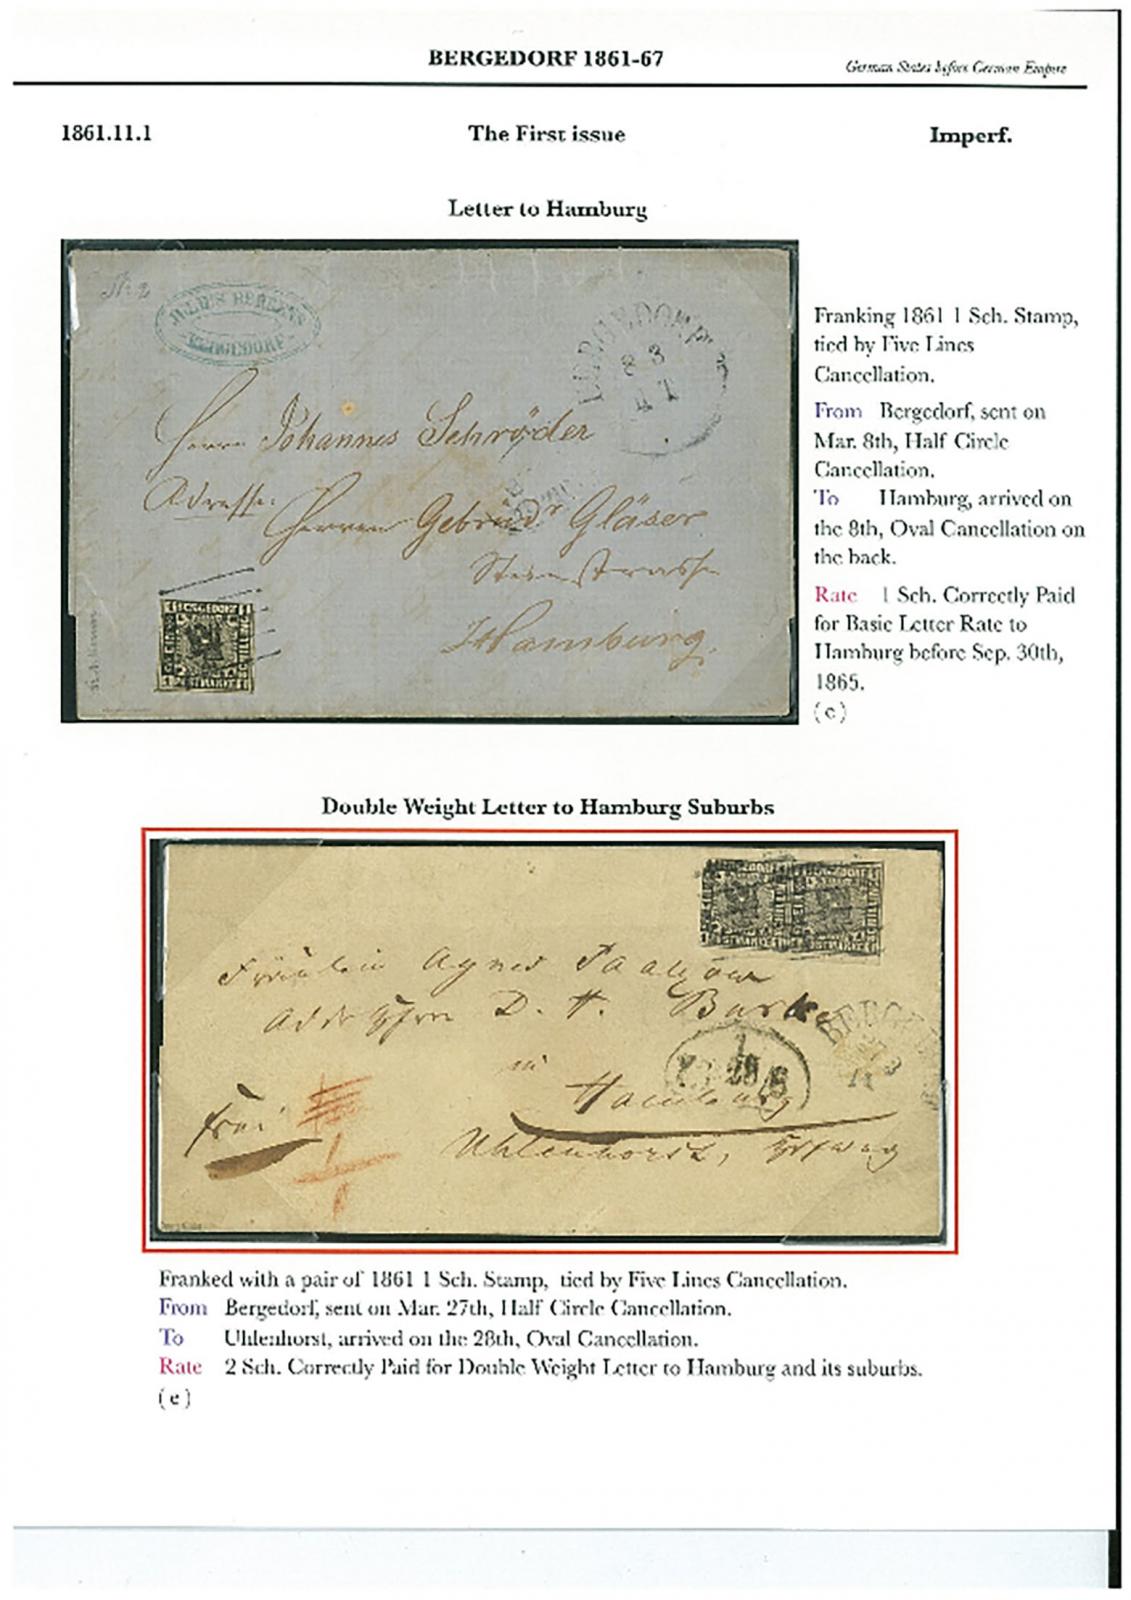 BERGEDORF 1861-67
German States before German Empire
1861.11.1
The First issue
Imperf.
Letter to Hamburg
No 2
JULIUS BEHRENS
BERGEDORF
BERGEDORF
8 3
4 T
Herrn Johannes Schröder
Adresse:
Herren Gebrüdr Gläser
Steinstrasse
Hamburg.
BERGEDORF
POSTMARKE
Franking 1861 1 Sch. Stamp,
tied by Five Lines
Cancellation.
From Bergedorf, sent on
Mar. 8th, Half Circle
Cancellation.
To Hamburg, arrived on
the 8th, Oval Cancellation on
the back.
Rate 1 Sch. Correctly Paid
for Basic Letter Rate to
Hamburg before Sep. 30th,
1865.
(c)
Double Weight Letter to Hamburg Suburbs
BERGEDORF BERGEDORF
POSTMARKE POSTMARKE
Fräulein Agnes
D. H.
BERGE
in
Hamburg
frei
Uhlenhorst,
Franked with a pair of 1861 1 Sch. Stamp, tied by Five Lines Cancellation.
From Bergedorf, sent on Mar. 27th, Half Circle Cancellation.
To Uhlenhorst, arrived on the 28th, Oval Cancellation.
Rate 2 Sch. Correctly Paid for Double Weight Letter to Hamburg and its suburbs.
(e)